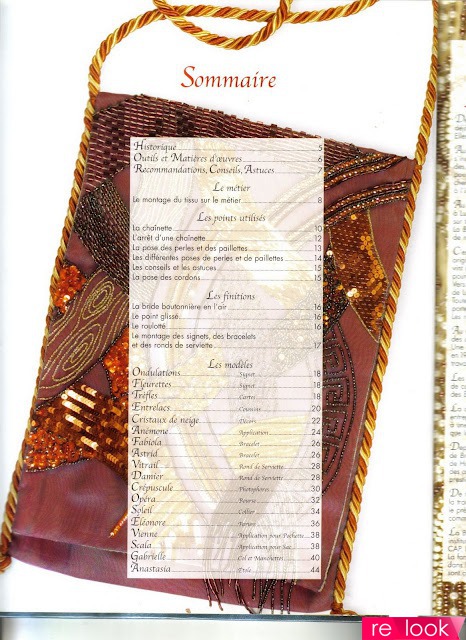 Sommaire
Historique 5
Outils et Matières d'œuvres 6
Recommandations, Conseils, Astuces 7
Le métier
Le montage du tissu sur le métier 8
Les points utilisés
La chaînette 10
L'arrêt d'une chaînette 12
La pose des perles et des paillettes 13
Les différentes poses de perles et de paillettes 14
Les conseils et les astuces 15
La pose des cordons 15
Les finitions
La bride boutonnière en l'air 16
Le point glissé 16
Le roulotté 16
Le montage des signets, des bracelets
et des ronds de serviette 17
Les modèles
Ondulations Signet 18
Fleurettes Signet 18
Trèfles Cartes 18
Entrelacs Coussins 20
Cristaux de neige Décors 22
Anémone Application 24
Fabiola Bracelet 26
Astrid Bracelet 26
Vitrail Rond de Serviette 28
Damier Rond de Serviette 28
Crépuscule Photophores 30
Opéra Bourse 32
Soleil Collier 34
Eléonore 36
Vienne Application pour Pochette 38
Scala Application pour Sac 38
Gabrielle Col et Manchettes 40
Anastasia Etole 44
re look